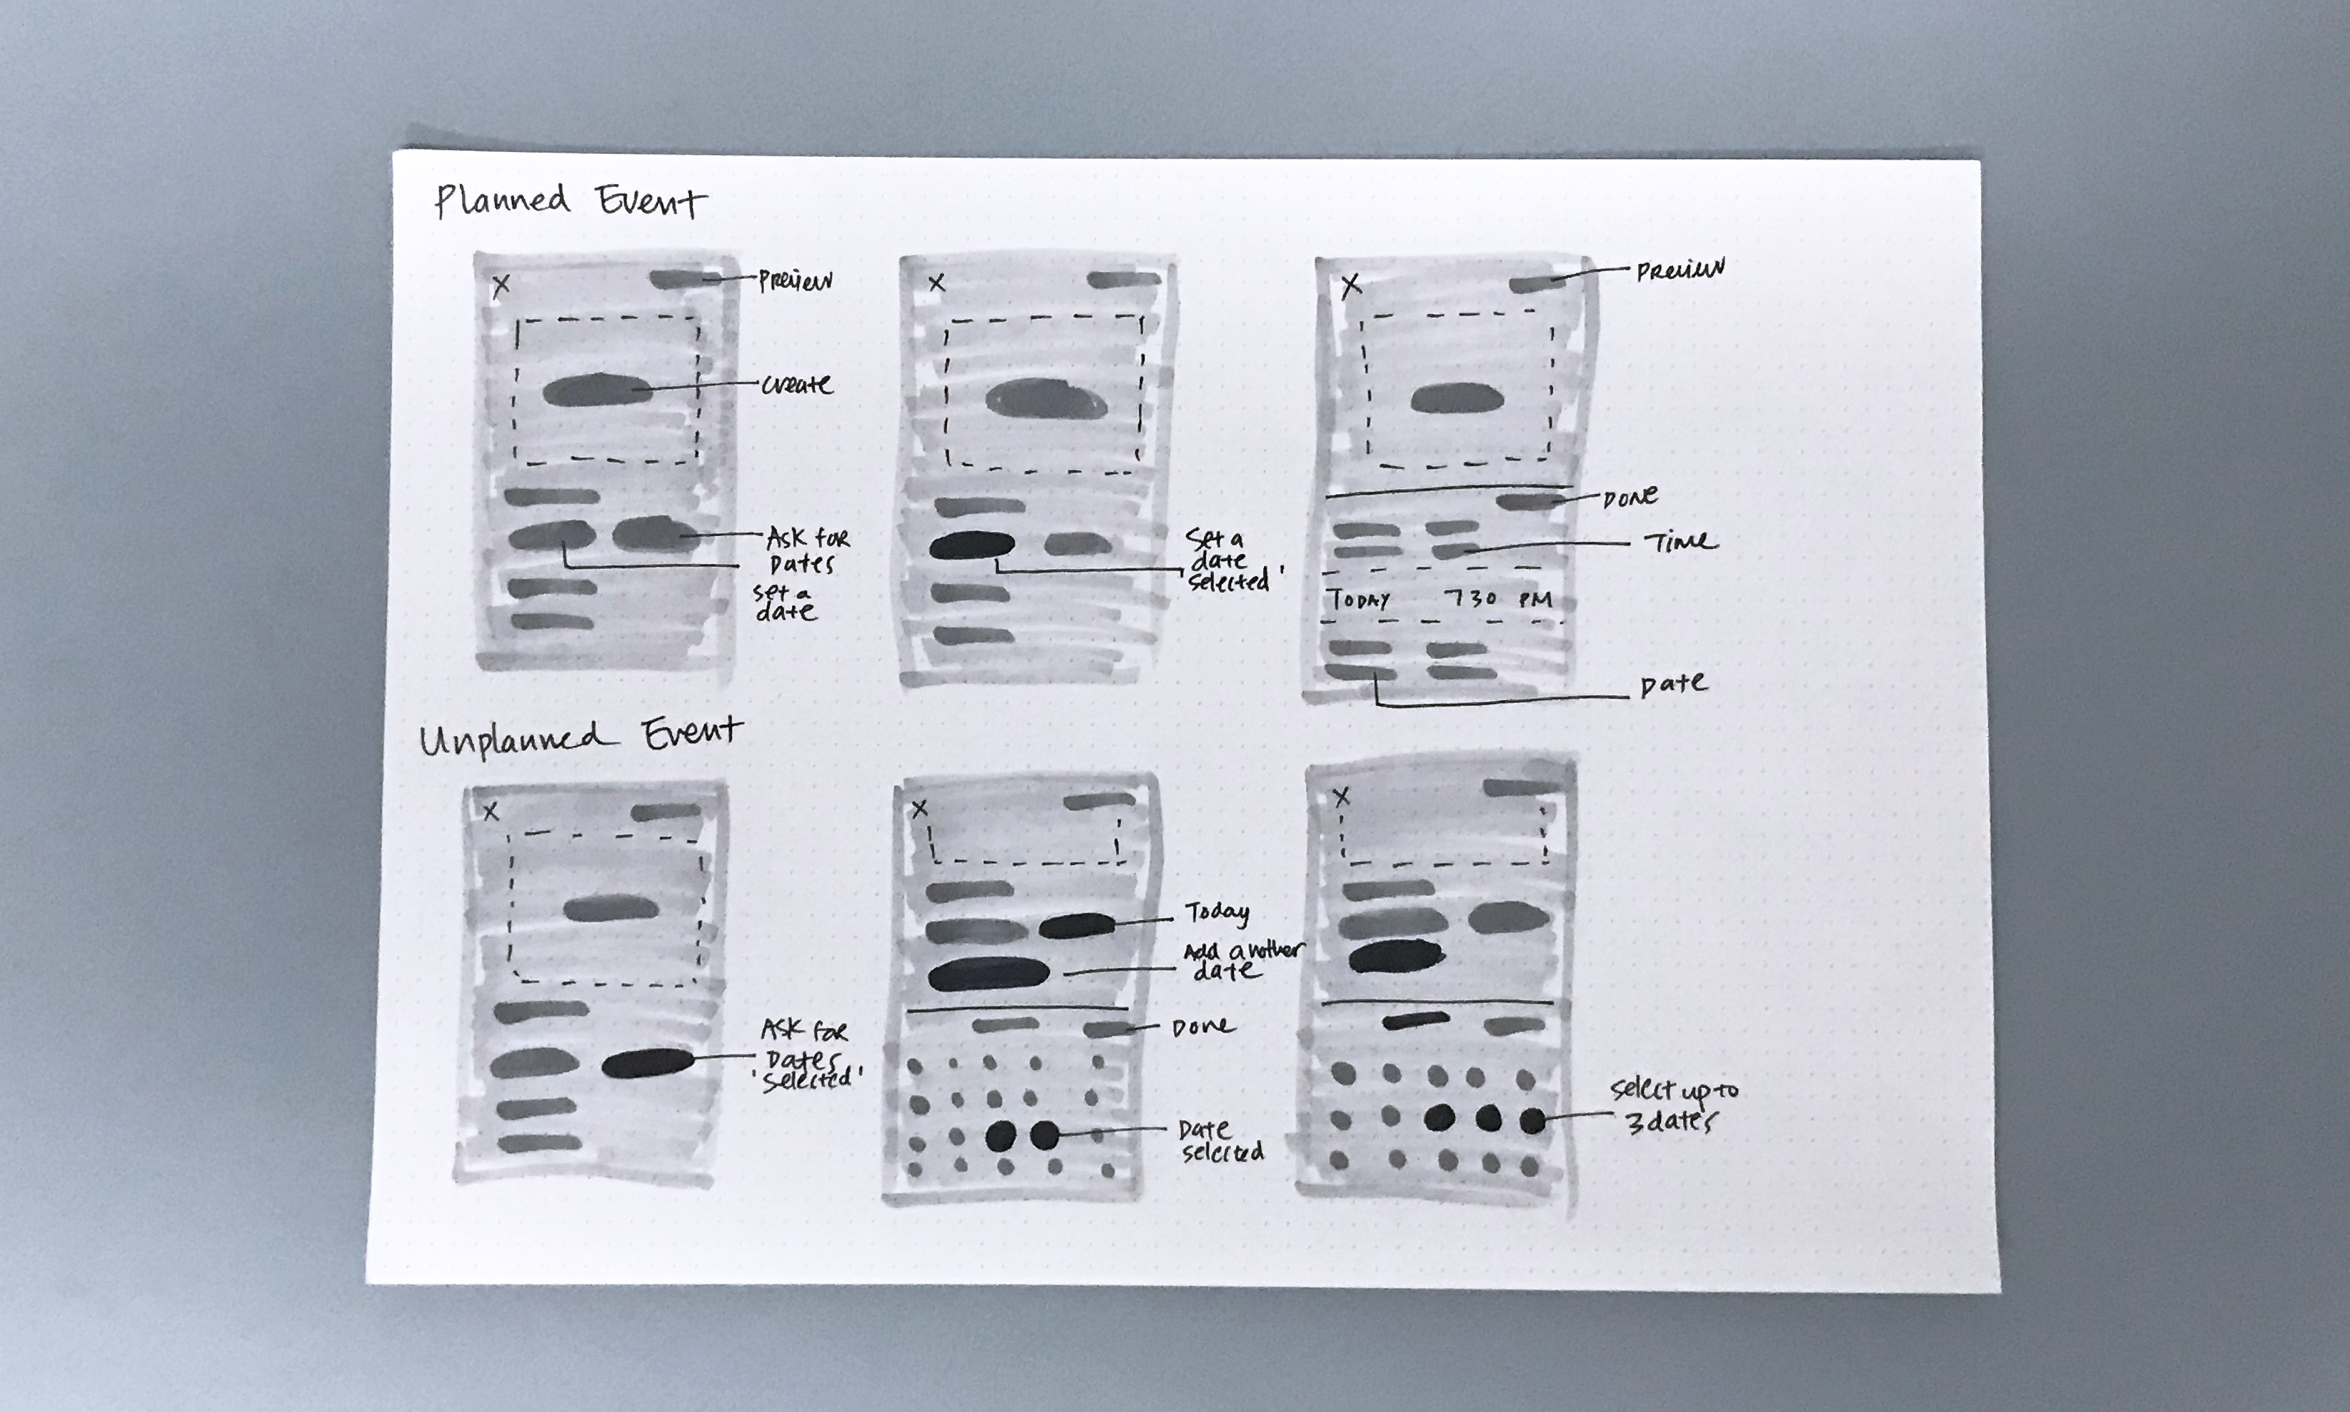 Planned Event
X
Preview
create
Ask for
Dates
set a
date
X
Set a
date
'selected'
X
Preview
DONE
Time
TODAY 730 PM
Date
Unplanned Event
X
Ask for
Dates
'selected'
X
Today
Add another
date
Done
Date
selected
X
select up to
3 dates